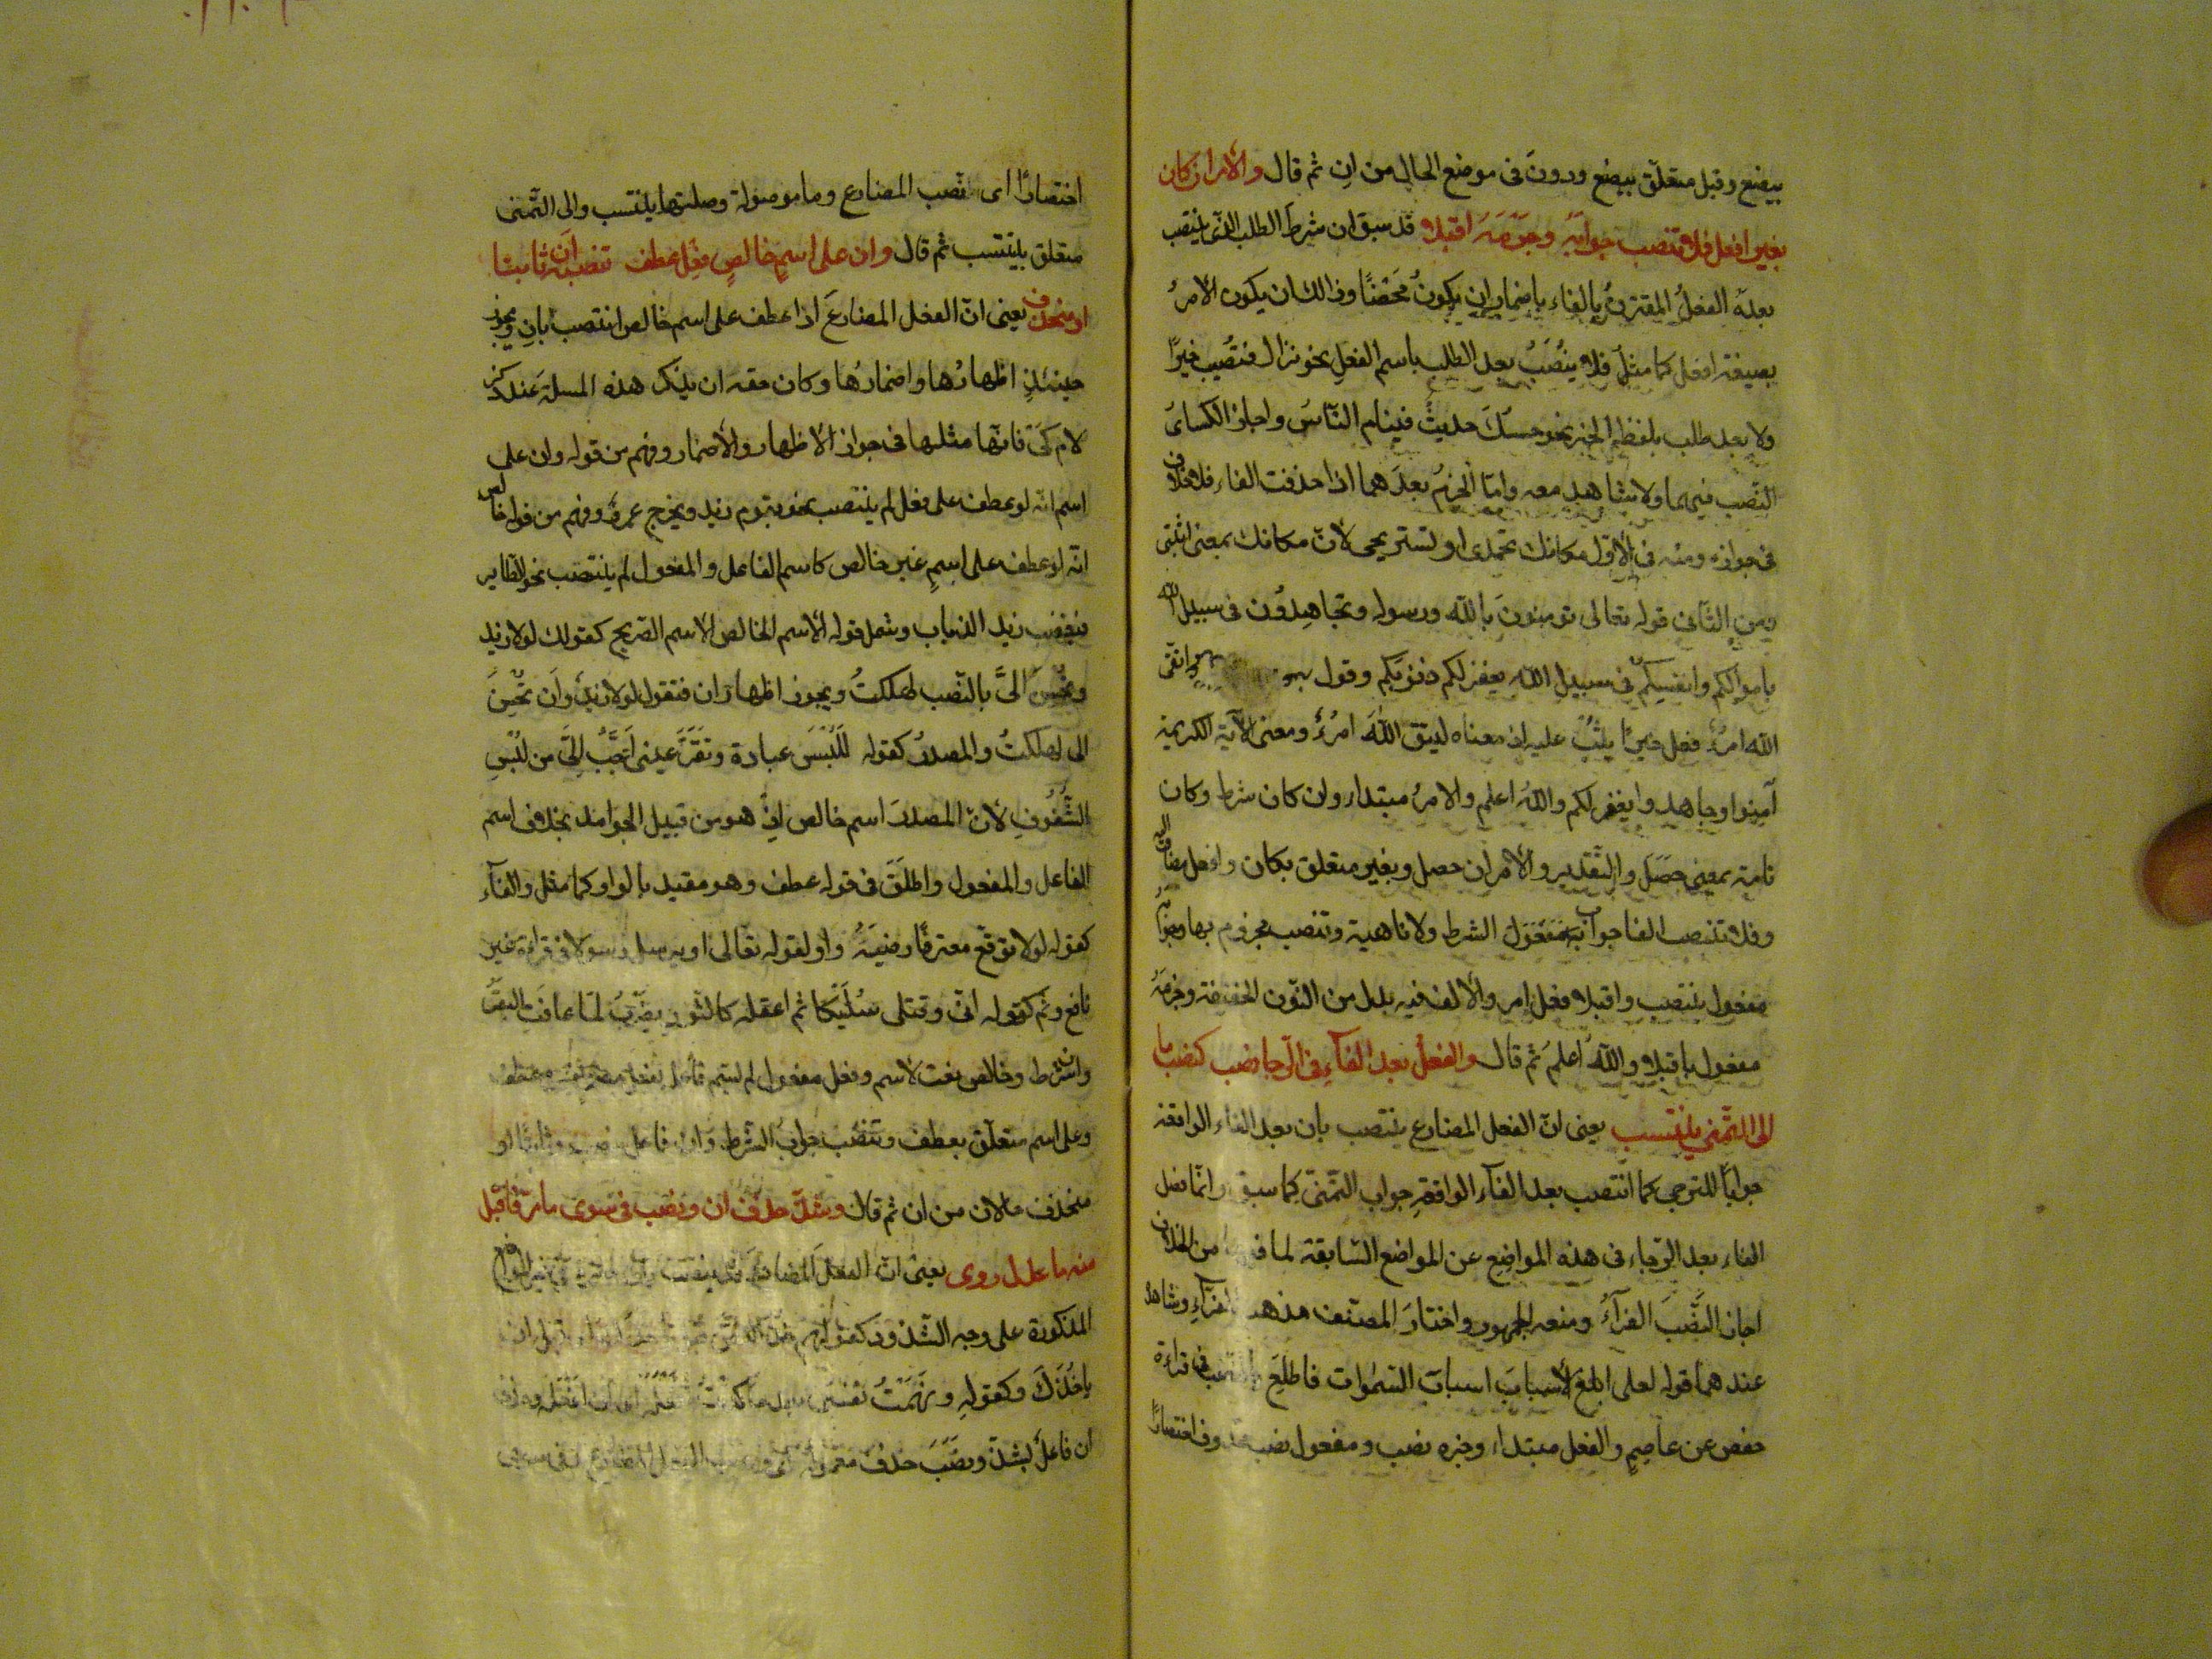 بيضع وقبل متعلّق بيضع ودونَ فى موضع الحال من انِ ثم قال والأمر ان كان
بغير افعل فلا تنصب جوابَه وجزمَه اقبلا قد سبق ان شرطَ الطلب الذى ينتصب
بعده الفعلُ المقترنُ بالفاء باضمار ان يكونَ مَحْضًا وذالك ان يكون الأمرُ
بصيغة افعل كما مثل فلا ينصَبُ بعد الطلب باسم الفعلِ نحو نزال فنصُيب خيرًا
ولا بعد طلب بلفظ الخبر نحو حسبُكَ حديثٌ فينام النّاسُ واجاز الكسائىُ
النّصب فيهما ولا شاهد معه وامّا الجزمُ بعدَهما اذا حذفت الفاء فلا خلاف
فى جوازه ومنه فى الأوّل مكانك تحمدى او تستريحى لأنّ مكانك بمعنى اثبتى
ومن الثّانى قوله تعالى تومنونَ بالله ورسوله وتجاهِدُون فى سبيل الله
باموالكم وانفسِكم فى سبيلِ الله يغفر لكم ذنوبَكم وقول اتقى
الله امرُءٌ فعل خيرًا يثَبْ عليه اذ معناه ليتق اللهَ امرُءٌ ومعنى الآية الكريمة
آمِنوا وجاهدوا يغفر لكم واللهُ اعلم والامرُ مبتداء وان كان شرط وكان
تامة بمعنى حصَلَ والتّقدير والأمر ان حصل وبغير متعلق بكان وافعل مضاف اليه
وفلا تنصب الفا جواب الشرط ولا ناهية وتنصب مجزوم بها وجوابَه
مفعول بتنصب واقبلا فعل امر والألف فيه بدل من النّون الخفيفة وجزمَهُ
مفعول باقبلا واللهُ اعلمَ ثم قال والفعلُ بعدَ الفآءِ فى الرّجا نصب كنصب ما
الى التّمنى ينتسب يعنى انّ الفعل المضارع ينتصب بان بعد الفاء الواقعة
جوابًا للترجى كما انتصب بعد الفآء الواقعةِ جواب التّمنّى كما سبق وانّما فصل
الفاء بعد الرّجاء فى هذه المواضِع عن المواضع السّابقة لما فيها من الخلاف
اجاز النَّصْبَ الفرآءُ ومنعه الجمهور واختارَ المصنّف مذهب الفرّآءِ وشاهد
عندهما قوله لعلى ابلغ الأسبابَ اسبابَ السّمٰوات فاطّلِعَ بالنصب فى قراءة
حفص عن عاصِمٍ والفعل مبتداء وخبره نصب ومفعول نصب محذوف اختصارًا
اختصارًا اى نصب المضارع وما موصولة وصلتها ينتسب والى التّمنى
متعلق بينتسب ثم قال وان على اسمٍ خالصٍ فعل عطف تنصبه أن ثابتا
او منحذف يعنى انّ الفعل المضارعَ اذا عطف على اسم خالص انتصب بانِ ويجوز
حينئذٍ اظهارُها واضمارُها وكان حقه ان يذكر هذه المسلة عند ذكر
لام كىْ فانّها مثلها فى جواز الاظهار والأضمار وفهم من قوله وان على
اسم انّه لو عطف على فعل لم ينتصب نحو يقوم زيد ويخرج عمرو وفهم من قوله خالص
انّه لو عطف على اسمٍ غير خالص كاسم الفاعل والمفعول لم ينتصب نحو الطّاير
فيغضب زيد الذباب وشمل قوله الأسم الخالص الاسم الصّريح كقولك لولا زيد
ويحْسِنَ الىَّ بالنّصب لهلكتُ ويجوز اظهار ان فتقول لولا زيدٌ وان يحْسِنَ
الى لهلكتُ والمصدرُ كقوله للُبْسَ عبادة وتقرَّ عينى احَبُّ الىَّ من لُبْسِ
الشُّفُوفِ لأنّ المصدرَ اسم خالص اذْ هو من قبيل الجوامد بخلاف اسم
الفاعل والمفعول واطلقَ فى قوله عطف وهو مقيد بالواو كما مثل والفآء
كقوله لولا توقّع معترفًا رضيَهُ واو لقوله تعالى او يرسل رسولا فى قراءة غير
نافع وثم كقوله انّى وقتلى سُلَيْكًا ثم اعقله كالثّور يضْرَبُ لمّا عافَت البقرُ
وان شرط وخالص نعت لأسم وفعل مفعول لم يسمّ فاعله بفعل عطف
وعلى اسم متعلّق بعطف وتنصْب جوابُ الشّرط وان فاعل او
منحذف حالان من ان ثم قال وشذّ حذْف ان ونصْب فى سوى ما مرّ فاقبل
منه ما عدل روى يعنى انّ الفعلَ المضارعَ قد ينتصب المواضع
المذكورة على وجه الشّذوذ كقولهم خذ اللّصّ قبل
ياخُذَكَ وكقولِهِ ونهنَهْتُ نفْسى بعد ما كدتُ افعله
ان فاعلٌ بشذّ ونصَبَ حذف